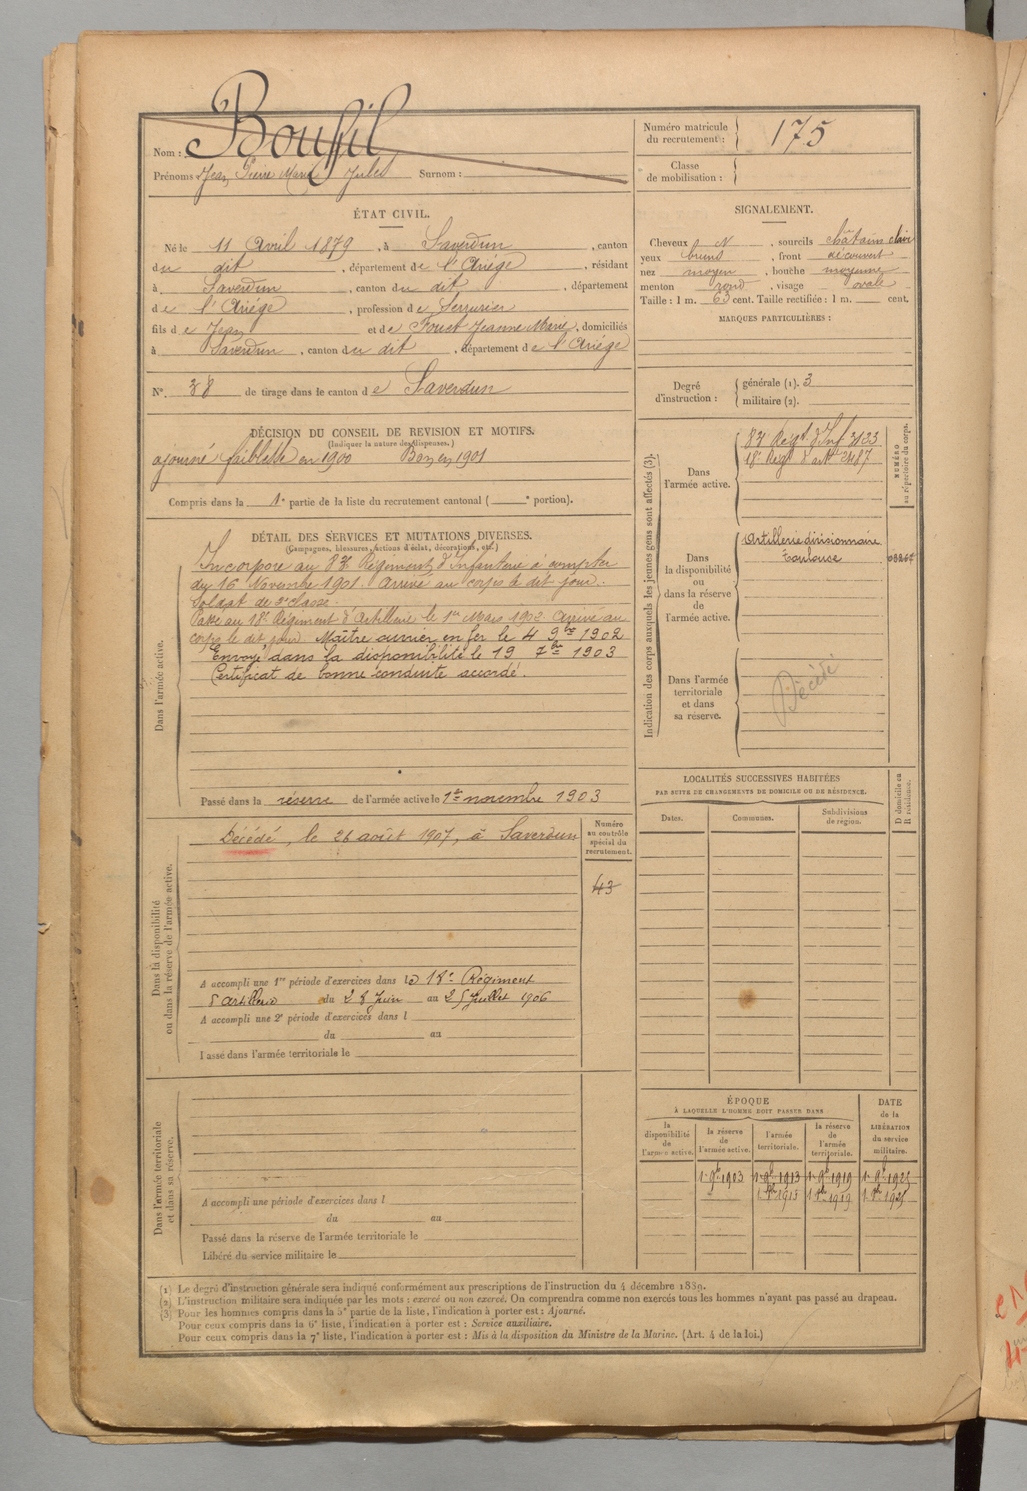 Nom : Bousfil
Prénoms Jean Pierre Marie Jules Surnom :
Numéro matricule
du recrutement : 175
Classe
de mobilisation :
ÉTAT CIVIL.
Né le 11 Avril 1879, à Saverdun, canton
du dit, département de l'Ariége, résidant
à Saverdun, canton du dit, département
de l'Ariége, profession de Serrurier
fils de Jean et de Fouet Jeanne Marie, domiciliés
à Saverdun, canton du dit, département de l'Ariége
N°. 38 de tirage dans le canton de Saverdun
SIGNALEMENT.
Cheveux N, sourcils châtains clairs
yeux bruns, front découvert
nez moyen, bouche moyenne
menton rond, visage ovale
Taille : 1 m. 63 cent. Taille rectifiée : 1 m. cent.
MARQUES PARTICULIÈRES :
Degré
d'instruction :
générale (1). 3
militaire (2).
DÉCISION DU CONSEIL DE REVISION ET MOTIFS.
(Indiquer la nature des dispenses.)
ajourné faiblesse en 1900 Bon en 1901
Compris dans la 1e partie de la liste du recrutement cantonal ( e portion).
DÉTAIL DES SERVICES ET MUTATIONS DIVERSES.
(Campagnes, blessures, actions d'éclat, décorations, etc.)
Dans l'armée active.
Incorporé au 83e Régiment d'Infanterie à compter
du 16 Novembre 1901. Arrivé au corps le dit jour.
Soldat de 2e classe.
Passé au 18e Régiment d'Artillerie le 1er Mars 1902 Arrivé au
corps le dit jour. Maître ouvrier en fer le 4 9bre 1902
Envoyé dans la disponibilité le 19 7bre 1903
Certificat de bonne conduite accordé.
Passé dans la réserve de l'armée active le 1er novembre 1903
Indication des corps auxquels les jeunes gens sont affectés (3).
NUMÉRO
au répertoire du corps.
Dans
l'armée active.
83e Régt. d'Inf 3133
18e Régt d'art 2487
Dans
la disponibilité
ou
dans la réserve
de
l'armée active.
Artillerie divisionnaire
Toulouse
Dans l'armée
territoriale
et dans
sa réserve.
Décédé
Dans la disponibilité
ou dans la réserve de l'armée active.
Décédé, le 26 août 1907, à Saverdun
Numéro
au contrôle
spécial du
recrutement.
43
A accompli une 1re période d'exercices dans le 18e Régiment
d'artillerie du 28 Juin au 25 Juillet 1906
A accompli une 2e période d'exercices dans l
du au
Passé dans l'armée territoriale le
LOCALITÉS SUCCESSIVES HABITÉES
PAR SUITE DE CHANGEMENTS DE DOMICILE OU DE RÉSIDENCE.
Dates. Communes. Subdivisions
de région.
D domicile ou
R résidence.
Dans l'armée territoriale
et dans sa réserve.
A accompli une période d'exercices dans l
du au
Passé dans la réserve de l'armée territoriale le
Libéré du service militaire le
ÉPOQUE
À LAQUELLE L'HOMME DOIT PASSER DANS
la
disponibilité
de
l'armée active.
la réserve
de
l'armée active.
l'armée
territoriale.
la réserve
de
l'armée
territoriale.
DATE
de la
LIBÉRATION
du service
militaire.
1er 9bre 1903 1er 9bre 1913 1er 9bre 1919
(1) Le degré d'instruction générale sera indiqué conformément aux prescriptions de l'instruction du 4 décembre 1889.
(2) L'instruction militaire sera indiquée par les mots : exercé ou non exercé. On comprendra comme non exercés tous les hommes n'ayant pas passé au drapeau.
(3) Pour les hommes compris dans la 5e partie de la liste, l'indication à porter est : Ajourné.
Pour ceux compris dans la 6e liste, l'indication à porter est : Service auxiliaire.
Pour ceux compris dans la 7e liste, l'indication à porter est : Mis à la disposition du Ministre de la Marine. (Art. 4 de la loi.)